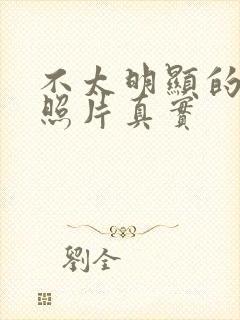 不太明顯的
照片真實
劉全